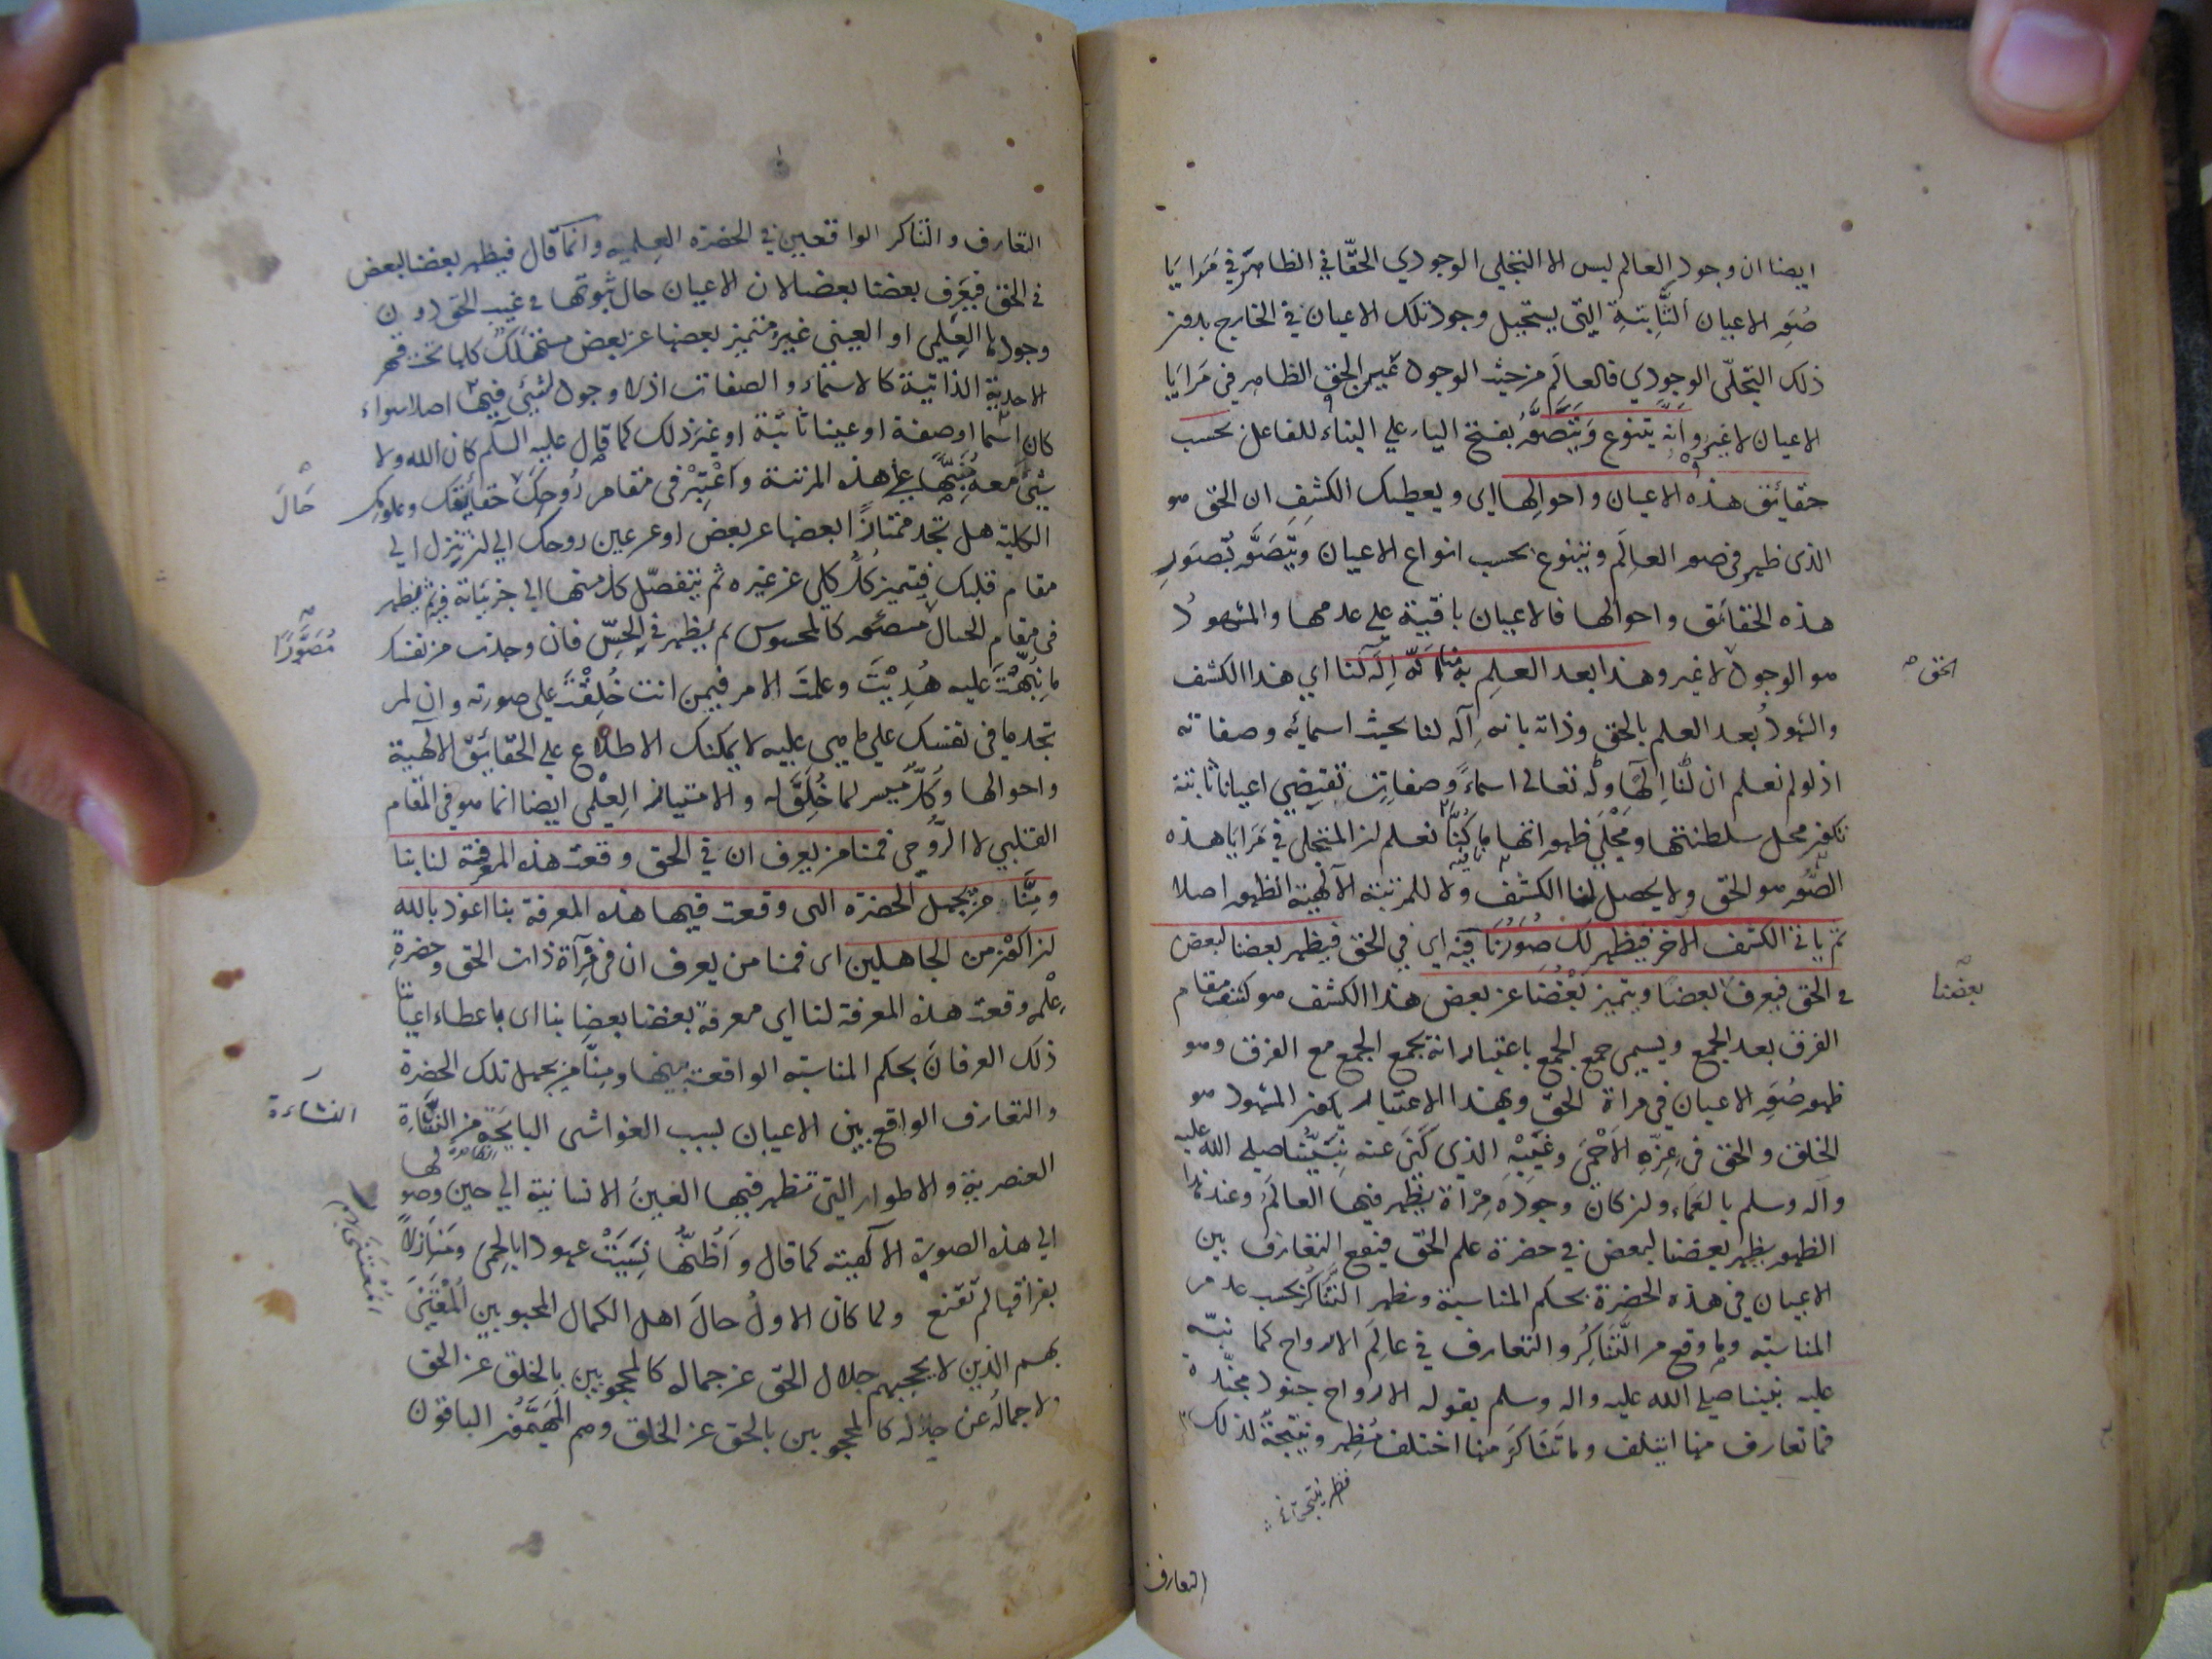 ايضا ان وجود العالم ليس الا التجلي الوجودي الحقّاني الظاهر في مَرَايَا
صُوَرِ الاعيان الثَّابِتةِ التي يستحيل وجود تلك الاعيان في الخارج بدون
ذلك التجلّي الوجودي فالعالَم من حيث الوجود عين الحق الظاهر في مَرَايَا
الاعيان لا غير وَأنَّهُ يتنوع وَيَتَصَوَّرُ بفتح الياء علي البناء للفاعل بحسب
حقائق هذه الاعيان واحوالِها اي ويعطيك الكشفِ ان الحق هو
الذي ظهر في صور العالَم ويتنوع بحسب انواع الاعيان ويَتَصَوَّر بصُوَرِ
هذه الحقائق واحوالها فالاعيان باقية علي عدمها والمشهودُ
هو الوجود لا غير وهذا بعد العلم به منا انّه اِلٰهٌ لَنا اي هذا الكشف
والشهودُ بعد العلم بالحق وذاته بانه اِلٰه لنا بحيث اسمائه وصفاته
اذ لو لم نعلم ان لَنا اِلٰهًا وله تعالى اسماءً وصفاتٍ تقتضي اعيانا ثابتة
تكون محل سلطنتها ومَجْلَي ظهوراتها ما كُنَّا نعلم ان المتجلي في مَرَايَا هذه
الصُّوَر هو الحق ولا يحصل لنا الكشف ولا للمرتبة الالٰهية الظهور اصلا
ثم ياتي الكشف الآخر فيظهر لك صُوَرُنَا فيه اي في الحق فيظهر بعضنا لبعض
في الحق فيعرف بعضنا ويتميز بَعْضُنا عن بعض هذا الكشف هو كشف مقام
الفرق بعد الجمع ويسمي جمع الجمع باعتبار انه يجمع الجمع مع الفرق وهو
ظهور صُوَرِ الاعيان في مراة الحق وبهذا الاعتبار يكون المشهود هو
الخلق والحق في عِزِّهِ الاَحْمَي وغَيْبِهِ الذي كَنَى عنه نَبِيُّنا صلي الله عليه
وآله وسلم بالعَماء وان كان وجودُه مِرْآةً يظهر فيها العالَمُ وعند هذا
الظهور يظهر بعضنا لبعض في حضرة علم الحق فيقع التعارف بين
الاعيان في هذه الحضرة بحكم المناسبة ويظهر التَّناكُر بحسب عدم
المناسبة وما وقع من التَّنَاكُرِ والتعارف في عالَم الارواح كما نبّه
عليه نبينا صلي الله عليه واله وسلم بقوله الارواح جنود مجنّدة
فما تعارف منها ايتلف وما تَنَاكَرَ منها اختلف مُظهر ونتيجةٌ لذلك
الحق صح
بعضنا
التعارف
التعارف والتناكر الواقعين في الحضرة العلمية وانما قال فيظهر بعضنا لبعض
في الحق فيَعْرِف بعضنا بعضا لان الاعيان حال ثبوتها في غيب الحق دون
وجودها العِلمي او العيني غيرُ متميز بعضها عن بعض مستهلكٌ كلها تحت قهر
الاحدية الذاتية كالاسماء والصفات اذ لا وجود لشيئ فيها اصلا سواء
كان اسما او صفة او عينا ثابتة او غير ذلك كما قال عليه السلم كان الله ولا
شيئ معه مُنَبِّهًا علي هذه المرتبة وَاعْتَبِرْ في مقام رُوحِكَ حقائقك وعلومك
الكلية هل تجد ممتازًا بعضها عن بعض او عن عين روحك الي ان تنزل الي
مقام قلبك فيتميز كلُّ كلي عن غيره ثم يتفصّل كل منها الي جزئياته فيظهر
في مقام الخيال كالمحسوس ثم يظهر في الحِسّ فان وجدت من نفسك
ما نُبِّهْتَ عليه هُدِيْتَ وعلمت الامر فيمن انت خُلِقْتَ علي صورته وان لم
تجد ما في نفسك علي ما هي عليه لا يمكنك الاطلاع علي الحقائق الالٰهية
واحوالها وَكُلٌّ مُيَسَّر لما خُلِقَ له والامتياز العِلمي ايضا انما هو في المقام
القلبي لا الرُّوحي فمنا من يعرف ان في الحق وقعت هذه المعرفة لنا بنا
ومِنَّا من يجهل الحضرة التي وقعت فيها هذه المعرفة بنا اعوذ بالله
ان اكون من الجاهلين اي فمنا من يعرف ان في مرآة ذات الحق وحضرة
عِلْمِه وقعت هذه المعرفة لنا اي معرفة بعضنا بعضا بنا اي باعطاء اعياننا
ذلك العرفان بحكم المناسبة الواقعة بينها ومِنَّا من يجهل تلك الحضرة
والتعارف الواقع بين الاعيان بسبب الغواشي من النَّشَاءة
العنصرية والاطوار التي تظهر فيها العين الانسانية الي حين وصولها
الي هذه الصورة الالٰهية كما قال وَاَظُنُّها نَسِيَتْ عهودا بالحِمَى ومَنَازِلًا
بفراقها لم تَقنع ولما كان الاولُ حالَ اهل الكمال المحبوبين المُعْتَنَى
بهم الذين لا يحجبهم جلال الحق عن جماله كالمحجوبين بالخلق عن الحق
ولا جمالُه عن جلاله كالمحجوبين بالحق عن الخلق وهم المُهَيَّمون الباقون
حَالَ
مُصَوَّرًا
النشاءة